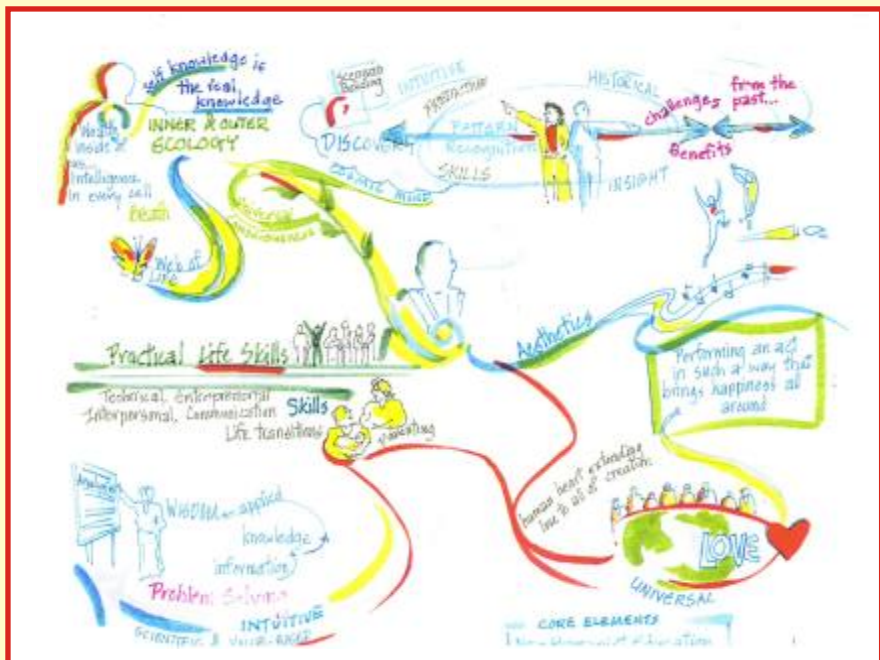 Self knowledge is
the real
knowledge
INNER & OUTER
ECOLOGY
inside of
us...
Intelligence
in every cell
Web of
Life
Universal
Scenario
Building
DISCOVERY
INTUITIVE
PATTERN
Recognition
SKILLS
COSMIC MIND
HISTORICAL
INSIGHT
challenges
Benefits
from the
past...
Practical Life Skills
Technical, Entrepreneurial
Interpersonal, Communication
Skills
Life transitions
Parenting
Aesthetics
Performing an act
in such a way that
brings happiness all
around
human heart extending
love to all of creation
LOVE
UNIVERSAL
WISDOM
applied
knowledge
information
Problem Solving
INTUITIVE
SCIENTIFIC & VALUE-BASED
CORE ELEMENTS
Education